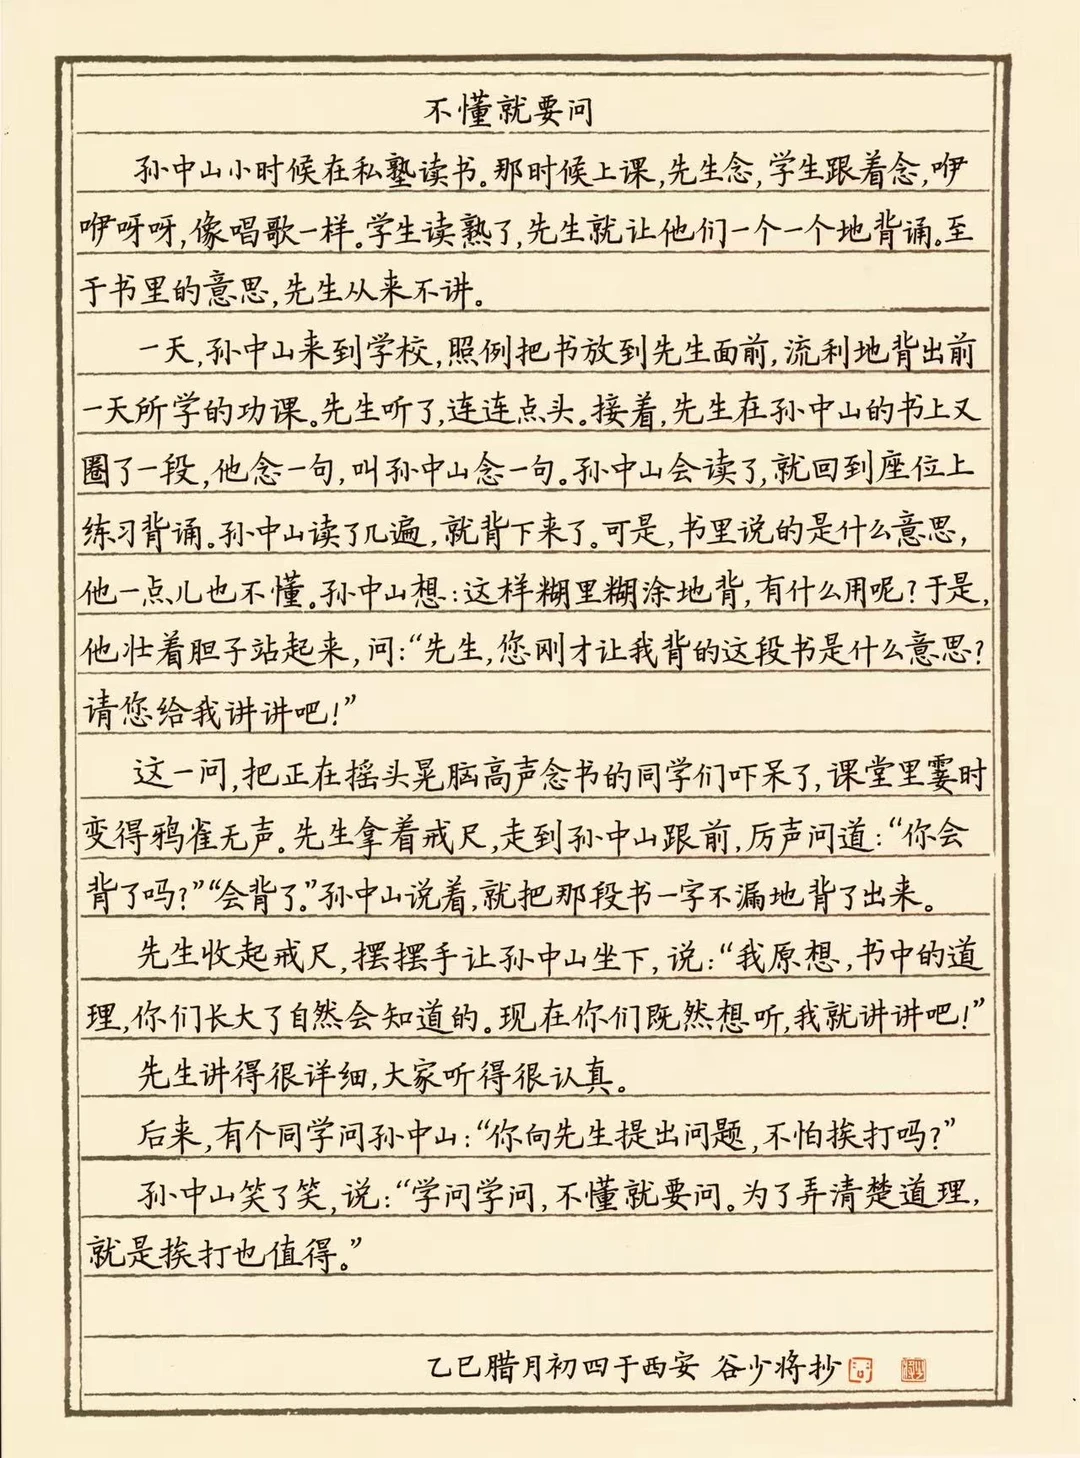 不懂就要问
孙中山小时候在私塾读书。那时候上课，先生念，学生跟着念，咿
咿呀呀，像唱歌一样。学生读熟了，先生就让他们一个一个地背诵。至
于书里的意思，先生从来不讲。
一天，孙中山来到学校，照例把书放到先生面前，流利地背出前
一天所学的功课。先生听了，连连点头。接着，先生在孙中山的书上又
圈了一段，他念一句，叫孙中山念一句。孙中山会读了，就回到座位上
练习背诵。孙中山读了几遍，就背下来了。可是，书里说的是什么意思，
他一点儿也不懂。孙中山想：这样糊里糊涂地背，有什么用呢？于是，
他壮着胆子站起来，问：“先生，您刚才让我背的这段书是什么意思？
请您给我讲讲吧！”
这一问，把正在摇头晃脑高声念书的同学们吓呆了，课堂里霎时
变得鸦雀无声。先生拿着戒尺，走到孙中山跟前，厉声问道：“你会
背了吗？”“会背了。”孙中山说着，就把那段书一字不漏地背了出来。
先生收起戒尺，摆摆手让孙中山坐下，说：“我原想，书中的道
理，你们长大了自然会知道的。现在你们既然想听，我就讲讲吧！”
先生讲得很详细，大家听得很认真。
后来，有个同学问孙中山：“你向先生提出问题，不怕挨打吗？”
孙中山笑了笑，说：“学问学问，不懂就要问。为了弄清楚道理，
就是挨打也值得。”
乙巳腊月初四于西安 谷少将抄